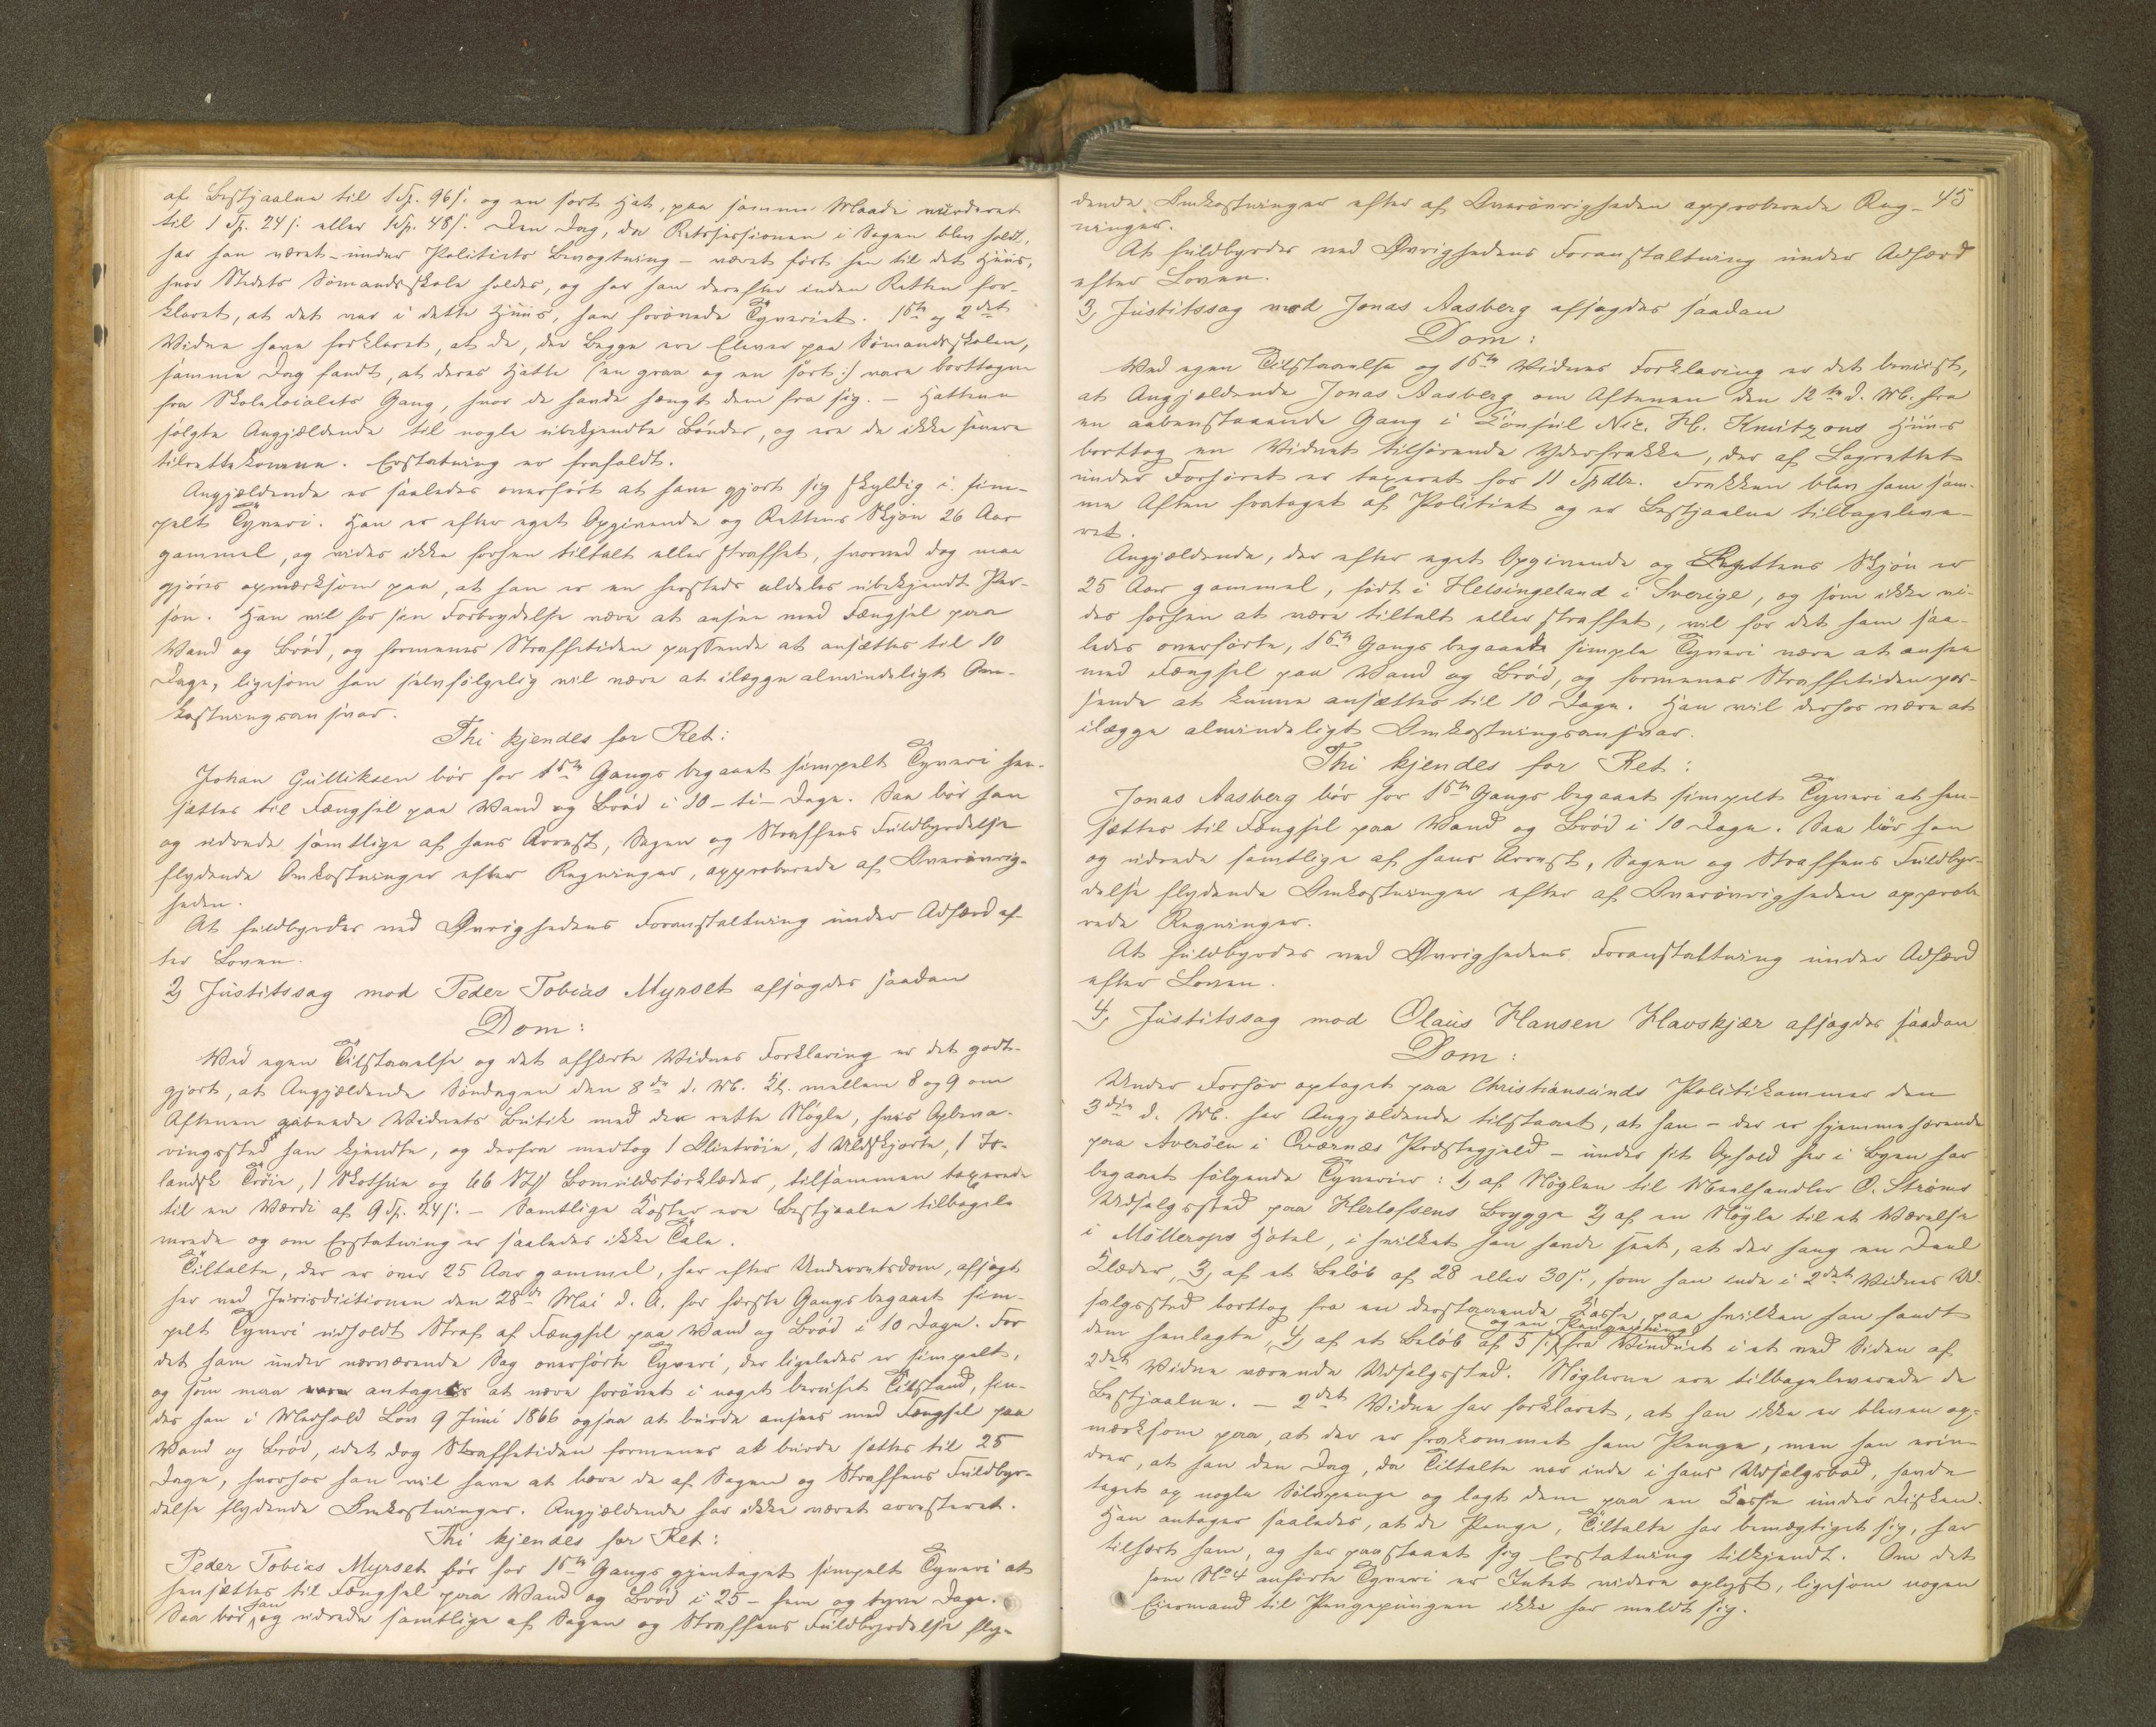 af Bestjaalne til 1 Sp. 96 s. og en sort Hat, paa samme Maade vurderet
til 1 Sp. 24 s. eller 1 Sp. 48 s. Den Dag, da Retssessionen i Sagen blev holdt,
har han været – under Politiets Bevogtning – været ført hen til det Huus,
hvor Stedets Sømandsskole holdes, og har han derefter inden Retten for-
klaret, at det var i dette Huus, han forøvede Tyveriet. 1ste og 2det
Vidne have forklaret, at de, der begge ere Elever paa Sømandsskolen,
samme Dag fandt, at deres Hatte (en graa og en sort:) vare borttagne
fra Skolelocalets Gang, hvor de havde hængt dem fra sig. – Hattene
solgte Angjældende til nogle ubekjendte Bønder, og ere de ikke senere
tilrettekomne. Erstatning er frafaldt.
Angjældende er saaledes overført at have gjort sig skyldig i sim-
pelt Tyveri. Han er efter eget Opgivende og Rettens Skjøn 26 Aar
gammel, og vides ikke forhen tiltalt eller straffet, hvorved dog maa
gjøres opmærksom paa, at han er en hersteds aldeles ubekjendt Per-
son. Han vil for sin Forbrydelse være at ansee med Fængsel paa
Vand og Brød, og formenes Straffetiden passende at ansættes til 10
Dage, ligesom han selvfølgelig vil være at ilægge almindeligt Om-
kostningsansvar.
Thi kjendes for Ret:
Johan Gulliksen bør for 1ste Gangs begaaet simpelt Tyveri hen-
sættes til Fængsel paa Vand og Brød i 10 – ti – Dage. Saa bør han
og udrede samtlige af hans Arrest, Sagen og Straffens Fuldbyrdelse
flydende Omkostninger efter Regninger, approberede af Overøvrig-
heden.
At fuldbyrdes ved Øvrighedens Foranstaltning under Adfærd ef-
ter Loven.
2, Justitssag mod Peder Tobias Myrset afsagdes saadan
Dom:
Ved egen Tilstaaelse og det afhørte Vidnes Forklaring er det godt-
gjort, at Angjældende Søndagen den 8de d. M. Kl. mellem 8 og 9 om
Aftenen aabnede Vidnets Butik med den rette Nøgle, hvis Opbeva-
ringssted han kjendte, og derfra medtog 1 Slintrøie, 1 Uldskjorte, 1 Is-
landsk Trøie, 1 Skotshue og 66 Stk Bomuldstørklæder, tilsammen taxerede
til en Værdi af 9 Sp. 24 s. – Samtlige Koster ere Bestjaalne tilbagele-
verede og om Erstatning er saaledes ikke Tale.
Tiltalte, der er over 25 Aar gammel, har efter Underretsdom, afsagt
her ved Jurisdictionen den 28de Mai d. A. for første Gangs begaaet sim-
pelt Tyveri udholdt Straf af Fængsel paa Vand og Brød i 10 Dage. For
det ham under nærværende Sag overførte Tyveri, der ligeledes er simpelt,
og som maa antages at være forøvet i noget beruset Tilstand, fin-
des han i Medhold Lov 9 Juni 1866 ogsaa at burde ansees med Fængsel paa
Vand og Brød, idet dog Straffetiden formenes at burde sættes til 25
Dage, hvorhos han vil have at bære de af Sagen og Straffens Fuldbyr-
delse flydende Omkostninger. Angjældende har ikke været arresteret.
Thi kjendes for Ret:
Peder Tobias Myrset bør for 1ste Gangs gjentaget simpelt Tyveri at
hensættes til Fængsel paa Vand og Brød i 25 – fem og tyve Dage.
Saa bør han og udrede samtlige af Sagen og Straffens Fuldbyrdelse fly-
45
dende Omkostninger efter af Overøvrigheden approberede Reg-
ninger.
At fuldbyrdes ved Øvrighedens Foranstaltning under Adfærd
efter Loven.
3, Justitssag mod Jonas Aasberg afsagdes saadan
Dom:
Ved egen Tilstaaelse og 1ste Vidnes Forklaring er det beviist,
at Angjældende Jonas Aasberg om Aftenen den 12te d. M. fra
en aabenstaaende Gang i Konsul Nic. H. Knutzons Huus
borttog en Vidnet tilhørende Yderfrakke, der af Lagrettet
under Forhøret er taxeret for 11 Spdlr. Frakken blev ham sam-
me Aften frataget af Politiet og er Bestjaalne tilbageleve-
ret.
Angjældende, der efter eget Opgivende og Rettens Skjøn er
25 Aar gammel, født i Helsingeland i Sverige, og som ikke vi-
des forhen at være tiltalt eller straffet, vil for det ham saa-
ledes overførte, 1ste Gangs begaaede simple Tyveri være at ansee
med Fængsel paa Vand og Brød, og formenes Straffetiden pas-
sende at kunne ansættes til 10 Dage. Han vil derhos være at
ilægge almindeligt Omkostningsansvar.
Thi kjendes for Ret:
Jonas Aasberg bør for 1ste Gangs begaaet simpelt Tyveri at hen-
sættes til Fængsel paa Vand og Brød i 10 Dage. Saa bør han
og udrede samtlige af hans Arrest, Sagen og Straffens Fuldbyr-
delse flydende Omkostninger efter af Overøvrigheden approbe
rede Regninger.
At fuldbyrdes ved Øvrighedens Foranstaltning under Adfærd
efter Loven.
4, Justitssag mod Olaus Hansen Havskjær afsagdes saadan
Dom:
Under Forhør optaget paa Christiansunds Politikammer den
3die d. M. har Angjældende tilstaaet, at han – der er hjemmehørende
paa Averøen i Qværnæs Præstegjeld – under sit Ophold her i Byen har
begaaet følgende Tyverier: 1, af Nøglen til Meelhandler O. Strøms
Udsalgssted paa Herlofsens Brygge 2, af en Nøgle til et Værelse
i Møllerops Hotel, i hvilket han havde seet, at der hang en Deel
Klæder, 3, af et Beløb af 28 eller 30 s., som han inde i 2det Vidnes Ud-
salgssted borttog fra en derstaaende Kasse paa hvilken han fandt
dem henlagte, 4, af et Beløb af 5 s. (og en Pengepung) fra Vinduet i et ved Siden af
2det Vidne værende Udsalgssted. Nøglerne ere tilbageleverede de
Bestjaalne. – 2det Vidne har forklaret, at han ikke er bleven op-
mærksom paa, at der er frakommet ham Penge, men han erin-
drer, at han den Dag, da Tiltalte var inde i hans Udsalgsbod, havde
taget op nogle Sølvpenge og lagt dem paa en Kasse under Disken.
Han antager saaledes, at de Penge, Tiltalte har bemægtiget sig, har
tilhørt ham, og har paastaaet sig Erstatning tilkjendt. Om det
som No 4 anførte Tyveri er Intet videre oplyst, ligesom nogen
Eiermand til Pengepungen ikke har meldt sig.